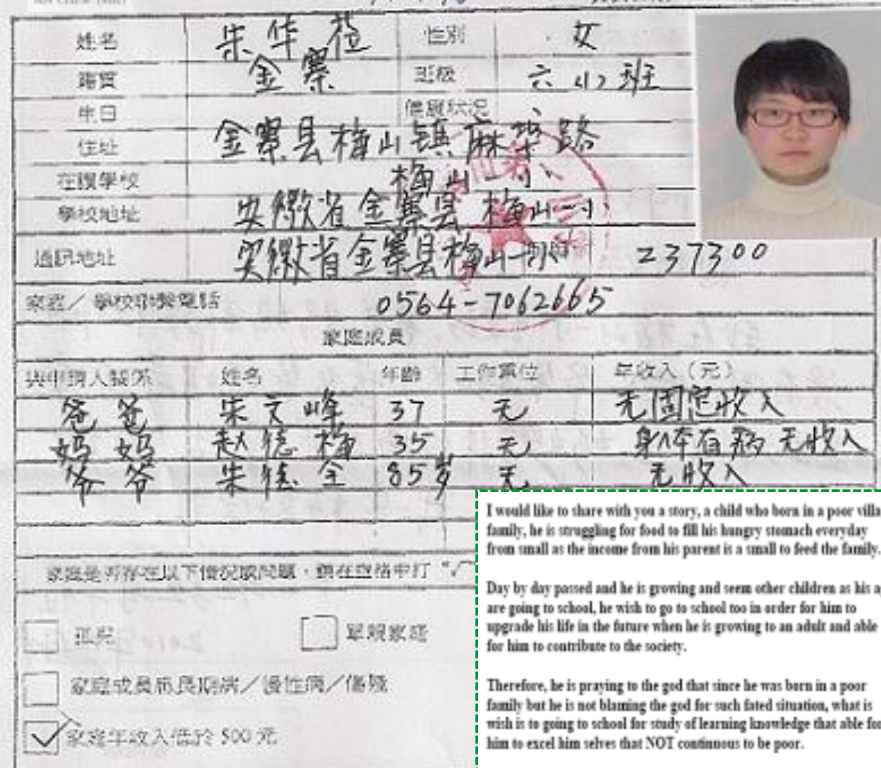 姓名 朱华 性別 女
籍貫 金寨 班級 六(1)班
生日 健康狀況
住址 金寨县梅山镇麻埠路
在讀學校 梅山一小
學校地址 安徽省金寨县梅山一小
通訊地址 安徽省金寨县梅山一小 237300
家庭／學校聯繫電話 0564-7062665
家庭成員
與申請人關係 姓名 年齡 工作單位 年收入（元）
爸爸 朱文峰 37 无 无固定收入
妈妈 赵德梅 35 无 身体有病 无收入
爷爷 朱德全 85岁 无 无收入
家庭是否存在以下情況或問題，請在空格中打 "√"
孤兒 單親家庭
家庭成員患長期病／慢性病／傷殘
家庭年收入低於 500 元
I would like to share with you a story, a child who born in a poor villa
family, he is struggling for food to fill his hungry stomach everyday
from small as the income from his parent is a small to feed the family.
Day by day passed and he is growing and seem other children as his a
are going to school, he wish to go to school too in order for him to
upgrade his life in the future when he is growing to an adult and able
for him to contribute to the society.
Therefore, he is praying to the god that since he was born in a poor
family but he is not blaming the god for such fated situation, what is
wish is to going to school for study of learning knowledge that able for
him to excel him selves that NOT continuous to be poor.